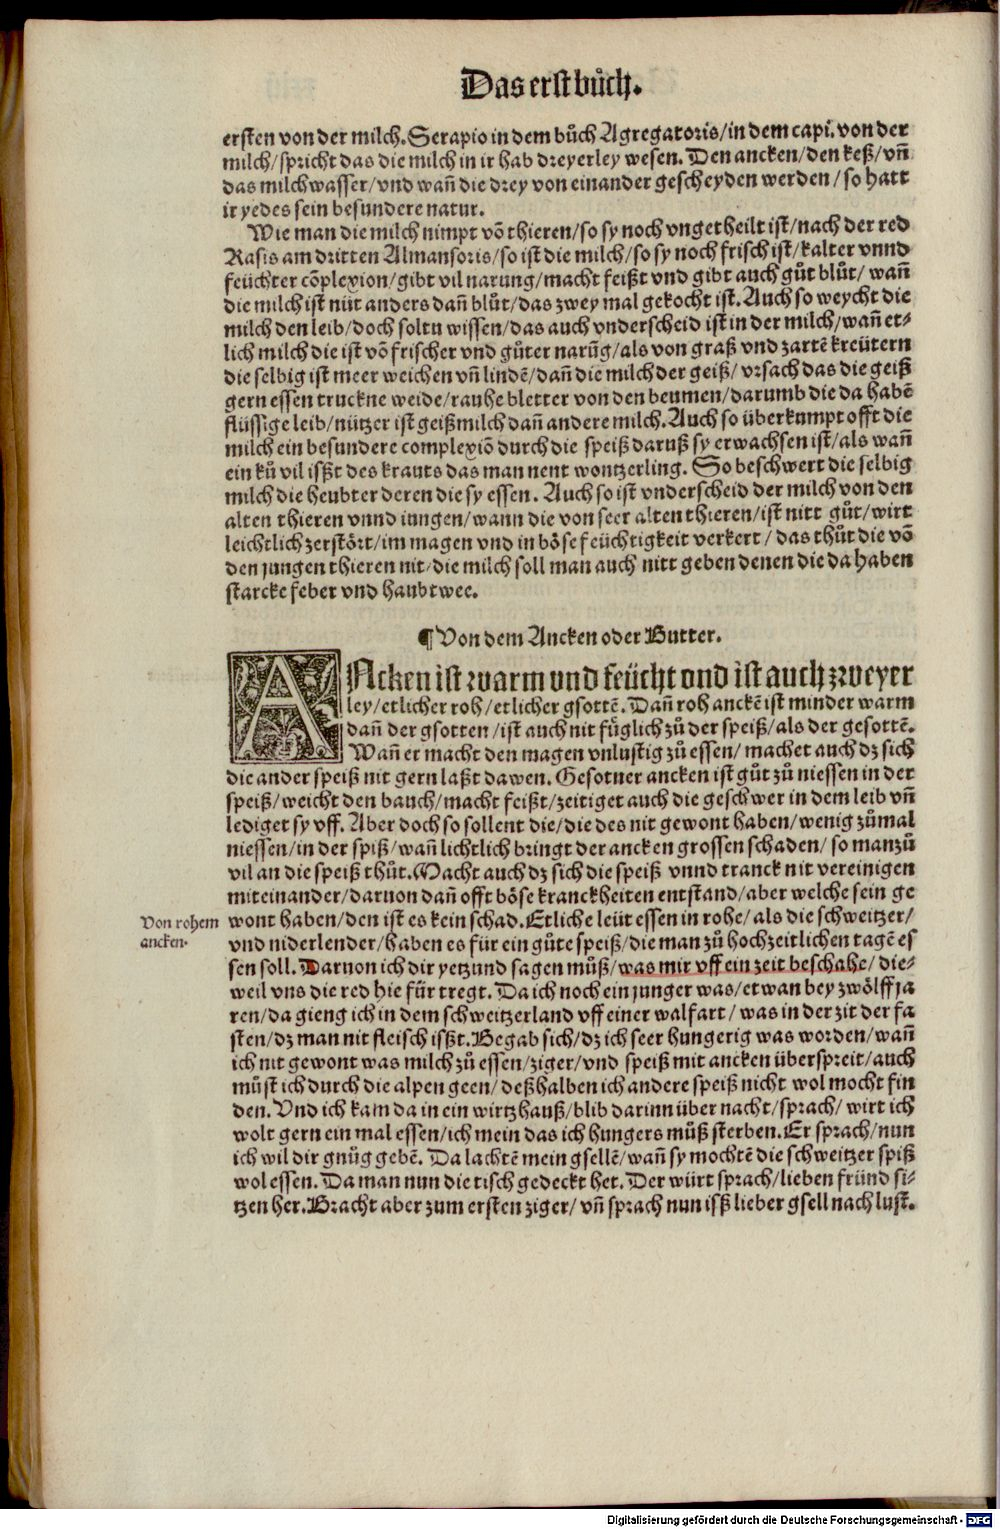 Das erst bůch.
ersten von der milch. Serapio in dem bůch Agregatoris/in dem capi. von der
milch/spricht das die milch in ir hab dreyerley wesen. Den ancken/den keß/vñ
das milchwasser/vnd wañ die drey von einander gescheyden werden/so hatt
ir yedes sein besundere natur.
Wie man die milch nimpt võ thieren/so sy noch vngetheilt ist/nach der red
Rasis am dritten Almansoris/so ist die milch/so sy noch frisch ist/kalter vnnd
feüchter cõplexion/gibt vil narung/macht feißt vnd gibt auch gůt blůt/wañ
die milch ist nüt anders dañ blůt/das zwey mal gekocht ist. Auch so weycht die
milch den leib/doch soltu wissen/das auch vnderscheid ist in der milch/wañ et-
lich milch die ist võ frischer vnd gůter narũg/als von graß vnd zartẽ kreütern
die selbig ist meer weichen vñ lindẽ/dañ die milch der geiß/vrsach das die geiß
gern essen truckne weide/rauhe bletter von den beumen/darumb die da habẽ
flüssige leib/nützer ist geißmilch dañ andere milch. Auch so überkumpt offt die
milch ein besundere complexiõ durch die speiß daruß sy erwachsen ist/als wañ
ein ků vil isßt des krauts das man nent wontzerling. So beschwert die selbig
milch die heubter deren die sy essen. Auch so ist vnderscheid der milch von den
alten thieren vnnd iungen/wann die von seer alten thieren/ist nitt gůt/wirt
leichtlich zerstört/im magen vnd in böse feüchtigkeit verkert/das thůt die võ
den jungen thieren nit/die milch soll man auch nitt geben denen die da haben
starcke feber vnd haubtwee.
¶ Von dem Ancken oder Butter.
ANcken ist warm vnd feücht vnd ist auch zweyer
ley/etlicher roh/etlicher gsottẽ. Dañ roh anckẽ ist minder warm
dañ der gsotten/ist auch nit füglich zů der speiß/als der gesottẽ.
Wañ er macht den magen vnlustig zů essen/machet auch dz sich
die ander speiß nit gern laßt dawen. Gesotner ancken ist gůt zů niessen in der
speiß/weicht den bauch/macht feißt/zeitiget auch die geschwer in dem leib vñ
lediget sy vff. Aber doch so sollent die/die des nit gewont haben/wenig zůmal
niessen/in der spiß/wañ lichtlich bringt der ancken grossen schaden/so man zů
vil an die speiß thůt. Macht auch dz sich die speiß vnnd tranck nit vereinigen
miteinander/daruon dañ offt böse kranckheiten entstand/aber welche sein ge
wont haben/den ist es kein schad. Etliche leüt essen in rohe/als die schweitzer/
Von rohem
ancken.
vnd niderlender/haben es für ein gůte speiß/die man zů hochzeitlichen tagẽ es
sen soll. Daruon ich dir yetzund sagen můß/was mir vff ein zeit beschahe/die-
weil vns die red hie für tregt. Da ich noch ein junger was/etwan bey zwölff ja
ren/da gieng ich in dem schweitzerland vff einer walfart/was in der zit der fa
sten/dz man nit fleisch isßt. Begab sich/dz ich seer hungerig was worden/wañ
ich nit gewont was milch zů essen/ziger/vnd speiß mit ancken überspreit/auch
můst ich durch die alpen geen/deßhalben ich andere speiß nicht wol mocht fin
den. Vnd ich kam da in ein wirtzhauß/blib darinn über nacht/sprach/wirt ich
wolt gern ein mal essen/ich mein das ich hungers můß sterben. Er sprach/nun
ich wil dir gnůg gebẽ. Da lachtẽ mein gsellẽ/wañ sy mochtẽ die schweitzer spiß
wol essen. Da man nun die tisch gedeckt het. Der würt sprach/lieben fründ si-
tzen her. Bracht aber zum ersten ziger/vñ sprach nun isß lieber gsell nach lust.
Digitalisierung gefördert durch die Deutsche Forschungsgemeinschaft - DFG